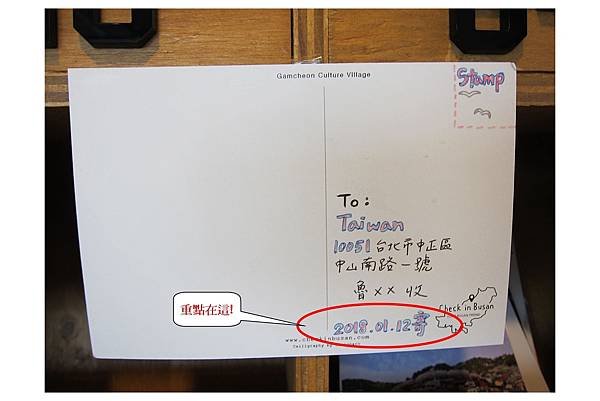 Gamcheon Culture Village
Stamp
To:
Taiwan
10051 台北市中正區
中山南路一號
魯 xx 收
Check in Busan
重點在這!
2018.01.12寄
www.checkinbusan.com